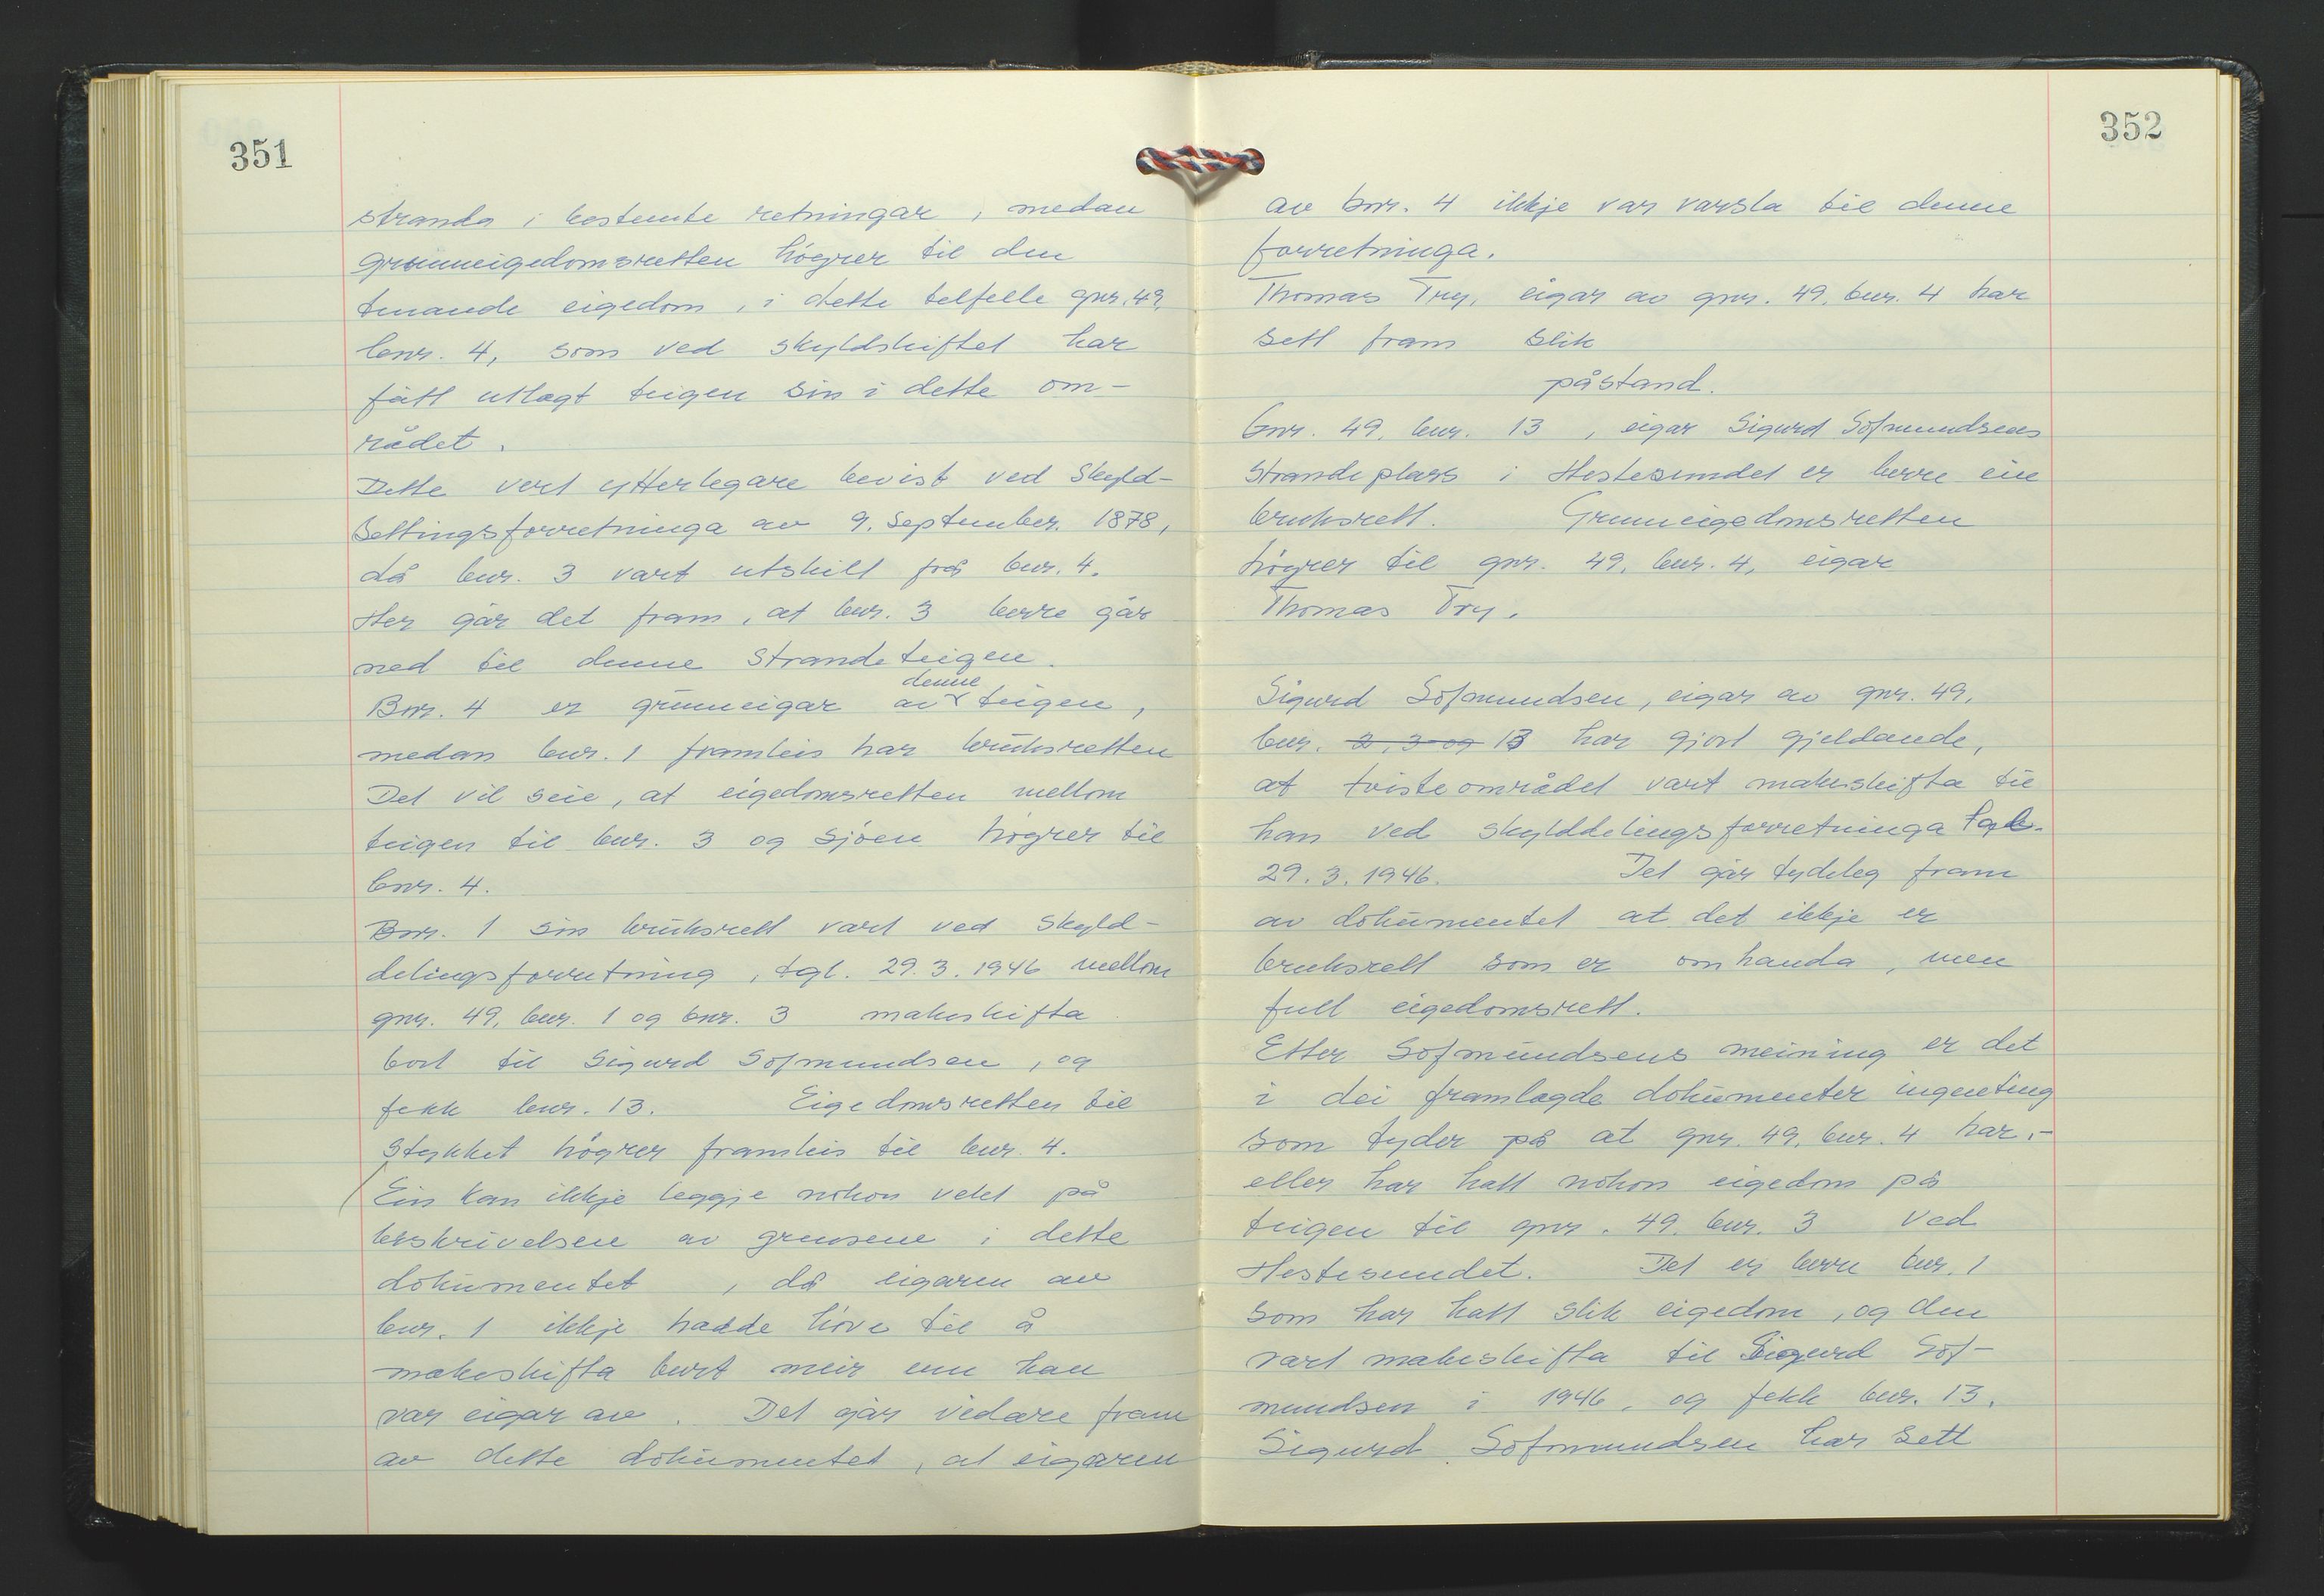 351
stranda i bestemte retningar, medan
grunneigedomsretten högrer til den
tenande eigedom, i dette telfelle gnr. 49,
bnr. 4, som ved skyldskiftet har
fått utlagt teigen sin i dette om-
rådet.
Dette vert ytterlegare bevist ved Skyld-
settingsforretninga av 9. September. 1878,
då bnr. 3 vart utskilt frå bnr. 4.
Her går det fram, at bnr. 3 berre går
ned til denne Strandeteigen.
Bnr. 4 er grunneigar av denne teigen,
medan bnr. 1 framleis har bruksretten
Det vil seie, at eigedomsretten mellom
teigen til bnr. 3 og sjöen högrer til
bnr. 4.
Bnr. 1 sin bruksrett vart ved Skyld-
delingsforretning, tgl. 29.3.1946 mellom
gnr. 49, bnr. 1 og bnr. 3 makeskifta
bort til Sigurd Sofmundsen, og
fekk bnr. 13. Eigedomsretten til
Stykket högrer framleis til bnr. 4.
Ein kan ikkje leggje nokon vekt på
beskrivelsen av grensene i dette
dokumentet, då eigaren av
bnr. 1 ikkje hadde höve til å
makeskifta burt meir enn han
var eigar av. Det går vidare fram
av dette dokumentet, at eigaren
352
av bnr. 4 ikkje var varsla til denne
forretninga.
Thomas Try, eigar av gnr. 49, bnr. 4 har
sett fram slik
påstand.
Gnr. 49, bnr. 13, eigar Sigurd Sofmundsens
Strandeplass i Hestesundet er berre ein
bruksrett. Grunneigedomsretten
högrer til gnr. 49, bnr. 4, eigar
Thomas Try.
Sigurd Sofmundsen, eigar av gnr. 49,
bnr. 2, 3 og 13 har gjort gjeldande,
at tvisteområdet vart makeskifta til
han ved skylddelingsforretninga tgl.
29.3.1946. Det går tydeleg fram
av dokumentet at det ikkje er
bruksrett som er omhanda, men
full eigedomsrett.
Etter Sofmundsens meining er det
i dei framlagde dokumenter ingenting
som tyder på at gnr. 49, bnr. 4 har,-
eller har hatt nokon eigedom på
teigen til gnr. 49, bnr. 3 ved
Hestesundet. Det er berre bnr. 1
som har hatt slik eigedom, og den
vart makeskifta til Sigurd Sof-
mundsen i 1946, og fekk bnr. 13.
Sigurd Sofmundsen har sett